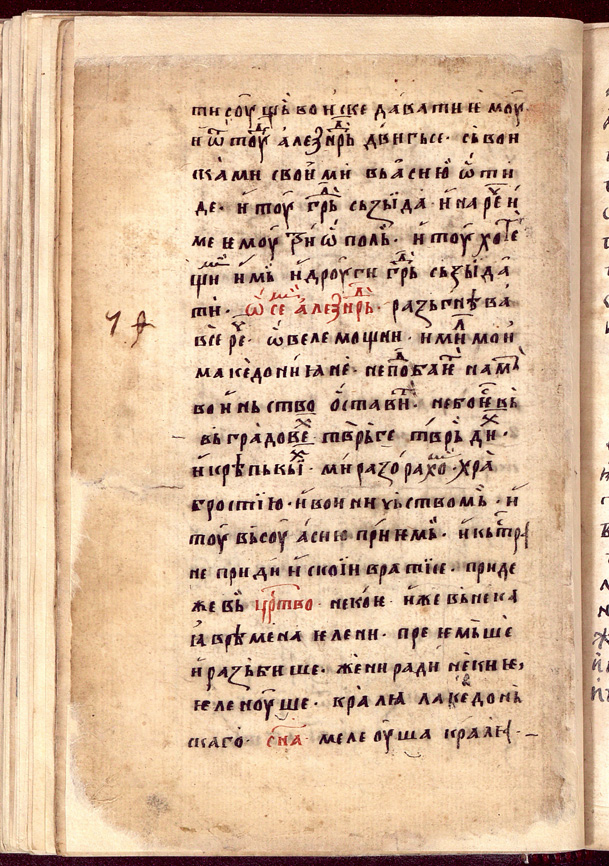 ти соущь воиске давати ѥмоу.
и ѿтоу алеѯⷩ҇дрь двигьсе· сь вои
сками свои́ми вь асию ѿти
де· и тоу граⷣ сьзыда· и нарⷱ҇е и
ме ѥмоу
поль· и тоу хотеⷯ
щи имь и дроуги граⷣ сьзыда
ти· ѡ се алеѯⷩ҇дрь· разьгнѣва
в се рⷱ҇е· ѡ велемощни· и мили мои
македонианѥ· не подобаеть намь
воиньство оставити· небоѥ вь
вь градовеⷯ тврьде тврьди·
и крѣпькыⷯ· ми разорахоⷨ· хра
бростию· и воиничьствомь· и
тоу вьсоу асию приѥмь· и кь
не приди и скои вратисе· приде
же вь црⷭ҇тво некоѥ· иже вь нека
ꙗ врѣмена ѥлени· преѥмьше
и разьбише· жени ради некиѥ,
ѥленоуше· кралꙗ лакедонь
скаго· сн҃а мелеоуша кралꙗ·